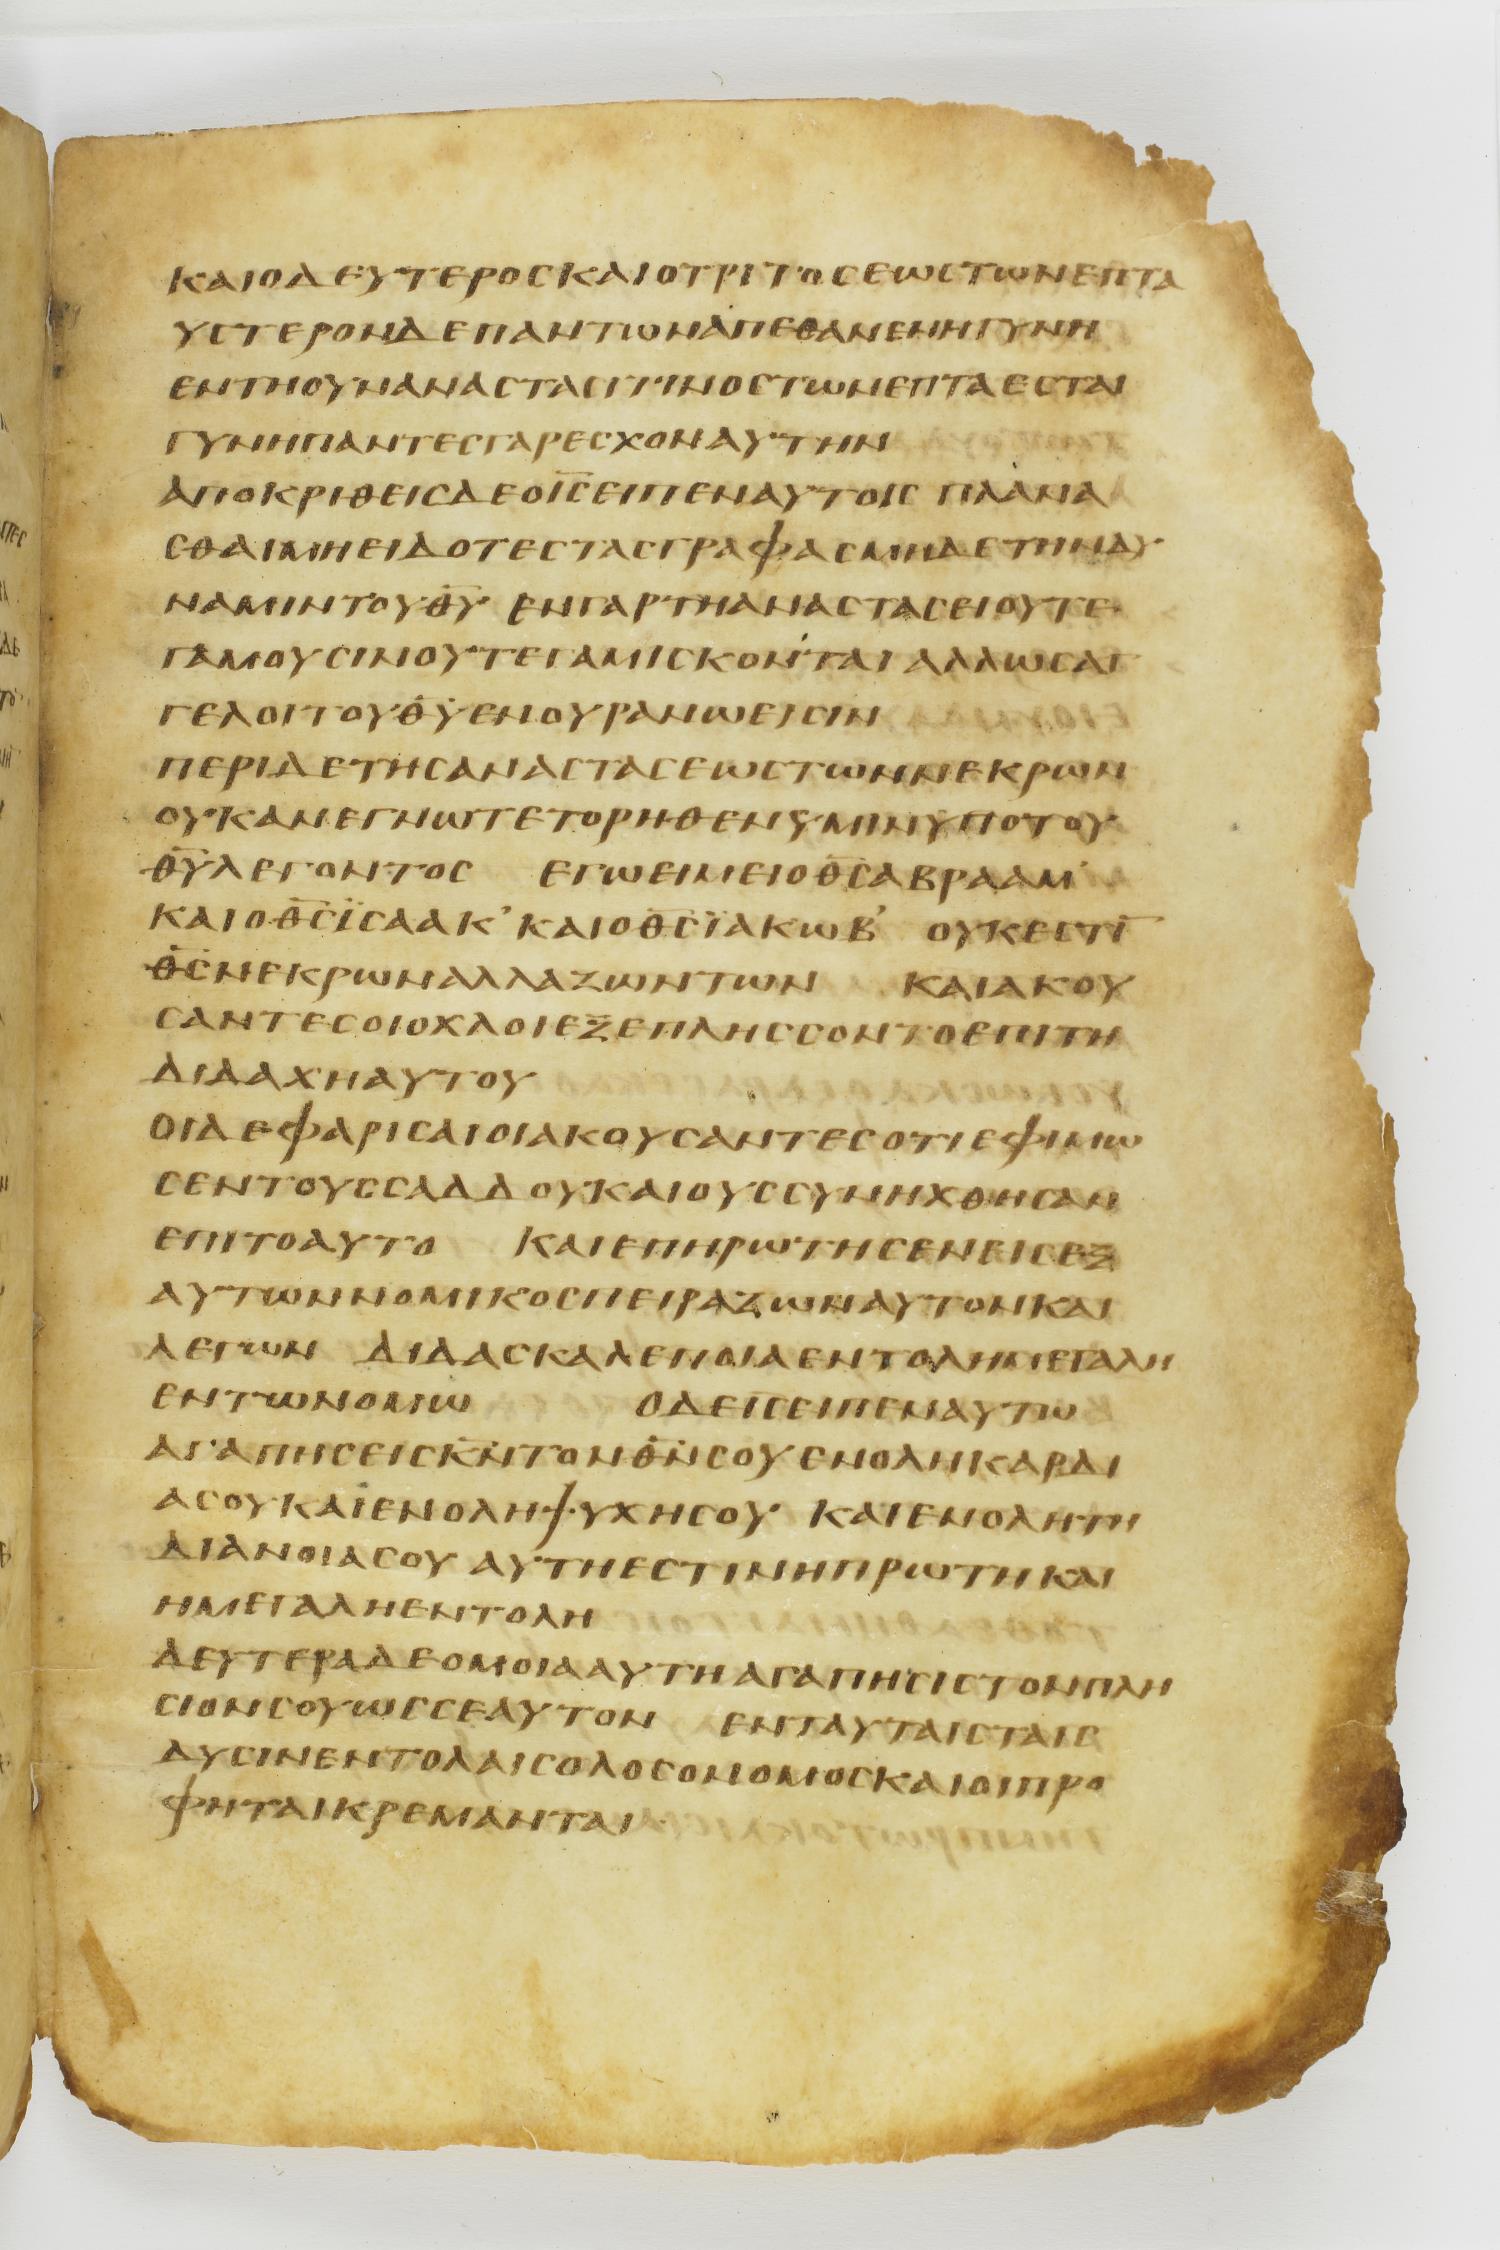 ΚΑΙΟΔΕΥΤΕΡΟCΚΑΙΟΤΡΙΤΟCΕΩCΤΩΝΕΠΤΑ
ΥCΤΕΡΟΝΔΕΠΑΝΤΩΝΑΠΕΘΑΝΕΝΗΓΥΝΗ
ΕΝΤΗΟΥΝΑΝΑCΤΑCΙΤΙΝΟCΤΩΝΕΠΤΑΕCΤΑΙ
ΓΥΝΗΠΑΝΤΕCΓΑΡΕCΧΟΝΑΥΤΗΝ
ΑΠΟΚΡΙΘΕΙCΔΕΟΙ̅C̅ΕΙΠΕΝΑΥΤΟΙC ΠΛΑΝΑ
CΘΑΙΜΗΕΙΔΟΤΕCΤΑCΓΡΑΦΑCΜΗΔΕΤΗΝΔΥ
ΝΑΜΙΝΤΟΥΘ̅Υ̅ ΕΝΓΑΡΤΗΑΝΑCΤΑCΕΙΟΥΤΕ
ΓΑΜΟΥCΙΝΟΥΤΕΓΑΜΙCΚΟΝΤΑΙ ΑΛΛΩCΑΓ
ΓΕΛΟΙΤΟΥΘ̅Υ̅ΕΝΟΥΡΑΝΩΕΙCΙΝ
ΠΕΡΙΔΕΤΗCΑΝΑCΤΑCΕΩCΤΩΝΝΕΚΡΩΝ
ΟΥΚΑΝΕΓΝΩΤΕΤΟΡΗΘΕΝΥΜΙΝΥΠΟΤΟΥ
Θ̅Υ̅ΛΕΓΟΝΤΟC ΕΓΩΕΙΜΕΙΟΘ̅C̅ΑΒΡΑΑΜ
ΚΑΙΟΘ̅C̅ΪCΑΑΚ’ ΚΑΙΟΘ̅C̅ΪΑΚΩΒ’ ΟΥΚΕCΤΙ̅
Θ̅C̅ΝΕΚΡΩΝΑΛΛΑΖΩΝΤΩΝ ΚΑΙΑΚΟΥ
CΑΝΤΕCΟΙΟΧΛΟΙΕΞΕΠΛΗCCΟΝΤΟΕΠΙΤΗ
ΔΙΔΑΧΗΑΥΤΟΥ
ΟΙΔΕΦΑΡΙCΑΙΟΙΑΚΟΥCΑΝΤΕCΟΤΙΕΦΙΜΩ
CΕΝΤΟΥCCΑΔΔΟΥΚΑΙΟΥCCΥΝΗΧΘΗCΑΝ
ΕΠΙΤΟΑΥΤΟ ΚΑΙΕΠΗΡΩΤΗCΕΝΕΙCΕΞ
ΑΥΤΩΝΝΟΜΙΚΟCΠΕΙΡΑΖΩΝΑΥΤΟΝΚΑΙ
ΛΕΓΩΝ ΔΙΔΑCΚΑΛΕΠΟΙΑΕΝΤΟΛΗΜΕΓΑΛΗ
ΕΝΤΩΝΟΜΩ ΟΔΕΙ̅C̅ΕΙΠΕΝΑΥΤΩ
ΑΓΑΠΗCΕΙCΚ̅Ν̅ΤΟΝΘ̅Ν̅CΟΥ ΕΝΟΛΗΚΑΡΔΙ
ΑCΟΥΚΑΙΕΝΟΛΗΨΥΧΗCΟΥ ΚΑΙΕΝΟΛΗΤΗ
ΔΙΑΝΟΙΑCΟΥ ΑΥΤΗΕCΤΙΝΗΠΡΩΤΗΚΑΙ
ΗΜΕΓΑΛΗΕΝΤΟΛΗ
ΔΕΥΤΕΡΑΔΕΟΜΟΙΑΑΥΤΗΑΓΑΠΗCΙCΤΟΝΠΛΗ
CΙΟΝCΟΥΩCCΕΑΥΤΟΝ ΕΝΤΑΥΤΑΙCΤΑΙC
ΔΥCΙΝΕΝΤΟΛΑΙCΟΛΟCΟΝΟΜΟCΚΑΙΟΙΠΡΟ
ΦΗΤΑΙΚΡΕΜΑΝΤΑΙ